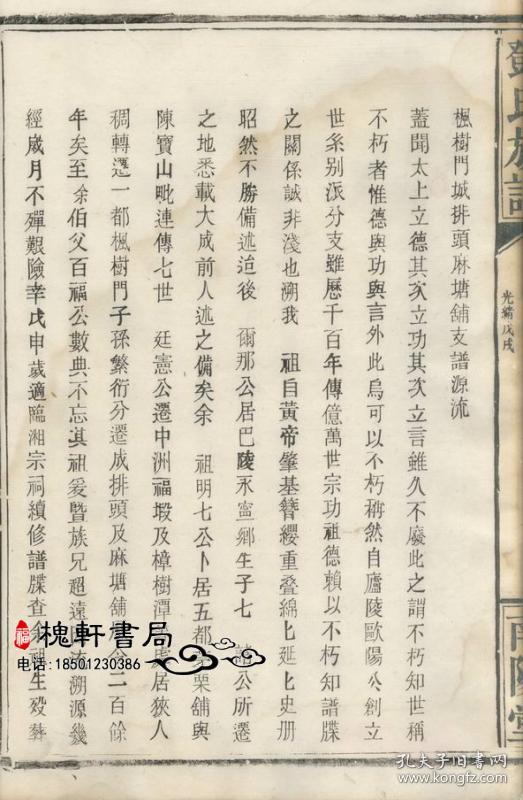 鄧氏族譜
光緒戊戌
南陽堂
楓樹門城排頭麻塘舖支譜源流
蓋聞太上立德其次立功其次立言雖久不廢此之謂不朽知世稱
不朽者惟德與功與言外此烏可以不朽稱然自廬陵歐陽公創立
世系别派分支雖歷千百年傳億萬世宗功祖德賴以不朽知譜牒
之關係誠非淺也溯我 祖自黃帝肇基簪纓重叠綿匕延匕史册
昭然不勝備述迨後 爾那公居巴陵永寧鄉生子七 諸公所遷
之地悉載大成前人述之備矣余 祖明七公卜居五都 栗舖與
陳寶山毗連傳七世 廷憲公遷中洲福塅及樟樹潭 居狹人
稠轉遷一都楓樹門子孫繁衍分遷成排頭及麻塘舖 今二百餘
年矣至余伯父百福公數典不忘其祖爰暨族兄超遠 溯源幾
經歲月不殫艱險幸戊申歲適臨湘宗祠續修譜牒查余祖生殁葬
槐軒書局
电话:18501230386
孔夫子旧书网
www.kongfz.com